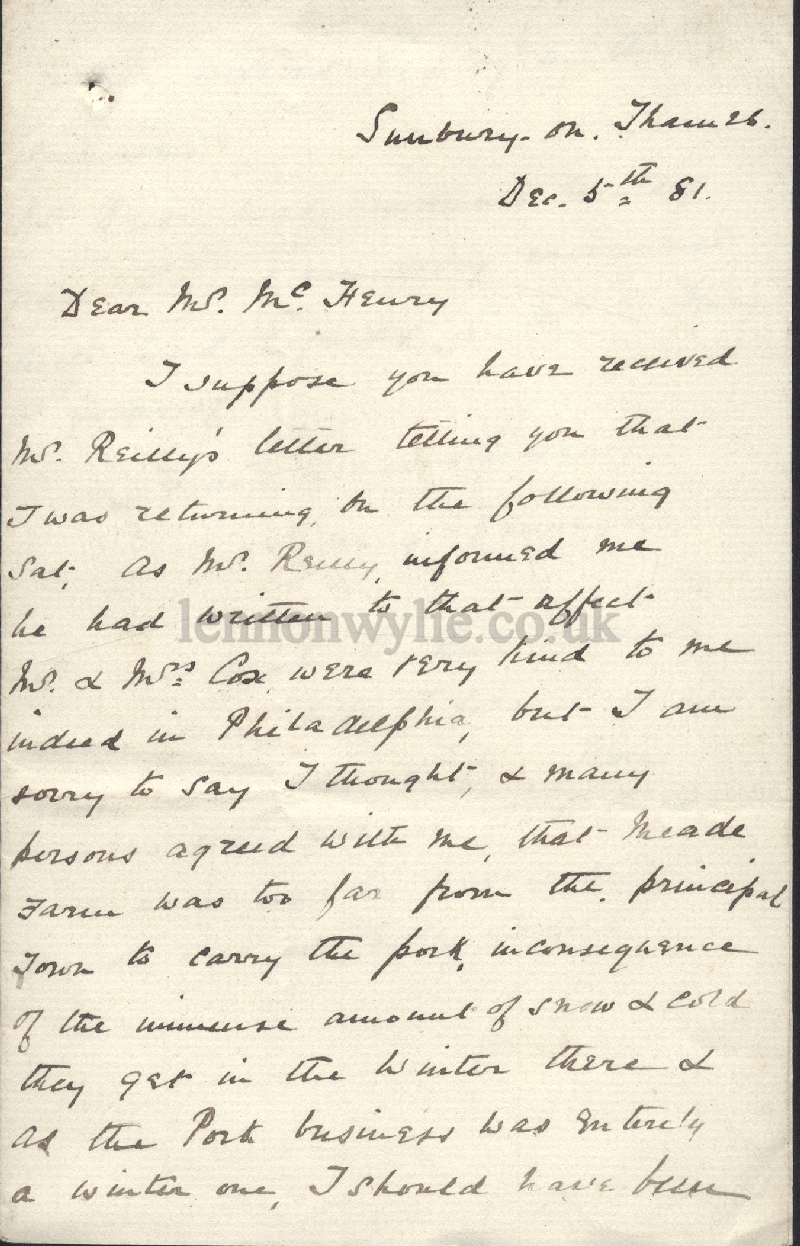 Sunbury-on-Thames.
Dec. 5th 81.
Dear Mr. Mc. Henry
I suppose you have received
Mr. Reilly's letter telling you that
I was returning, on the following
Sat, as Mr. Reilly, informed me
he had written to that effect
lennonwylie.co.uk
Mr. & Mrs Cox were very kind to me
indeed in Philadelphia, but I am
sorry to say I thought, & many
persons agreed with me, that Meade
Farm was too far from the principal
Town to carry the pork, inconsequence
of the immense amount of snow & cold
they get in the Winter there &
as the Pork business was entirely
a winter one, I should have been